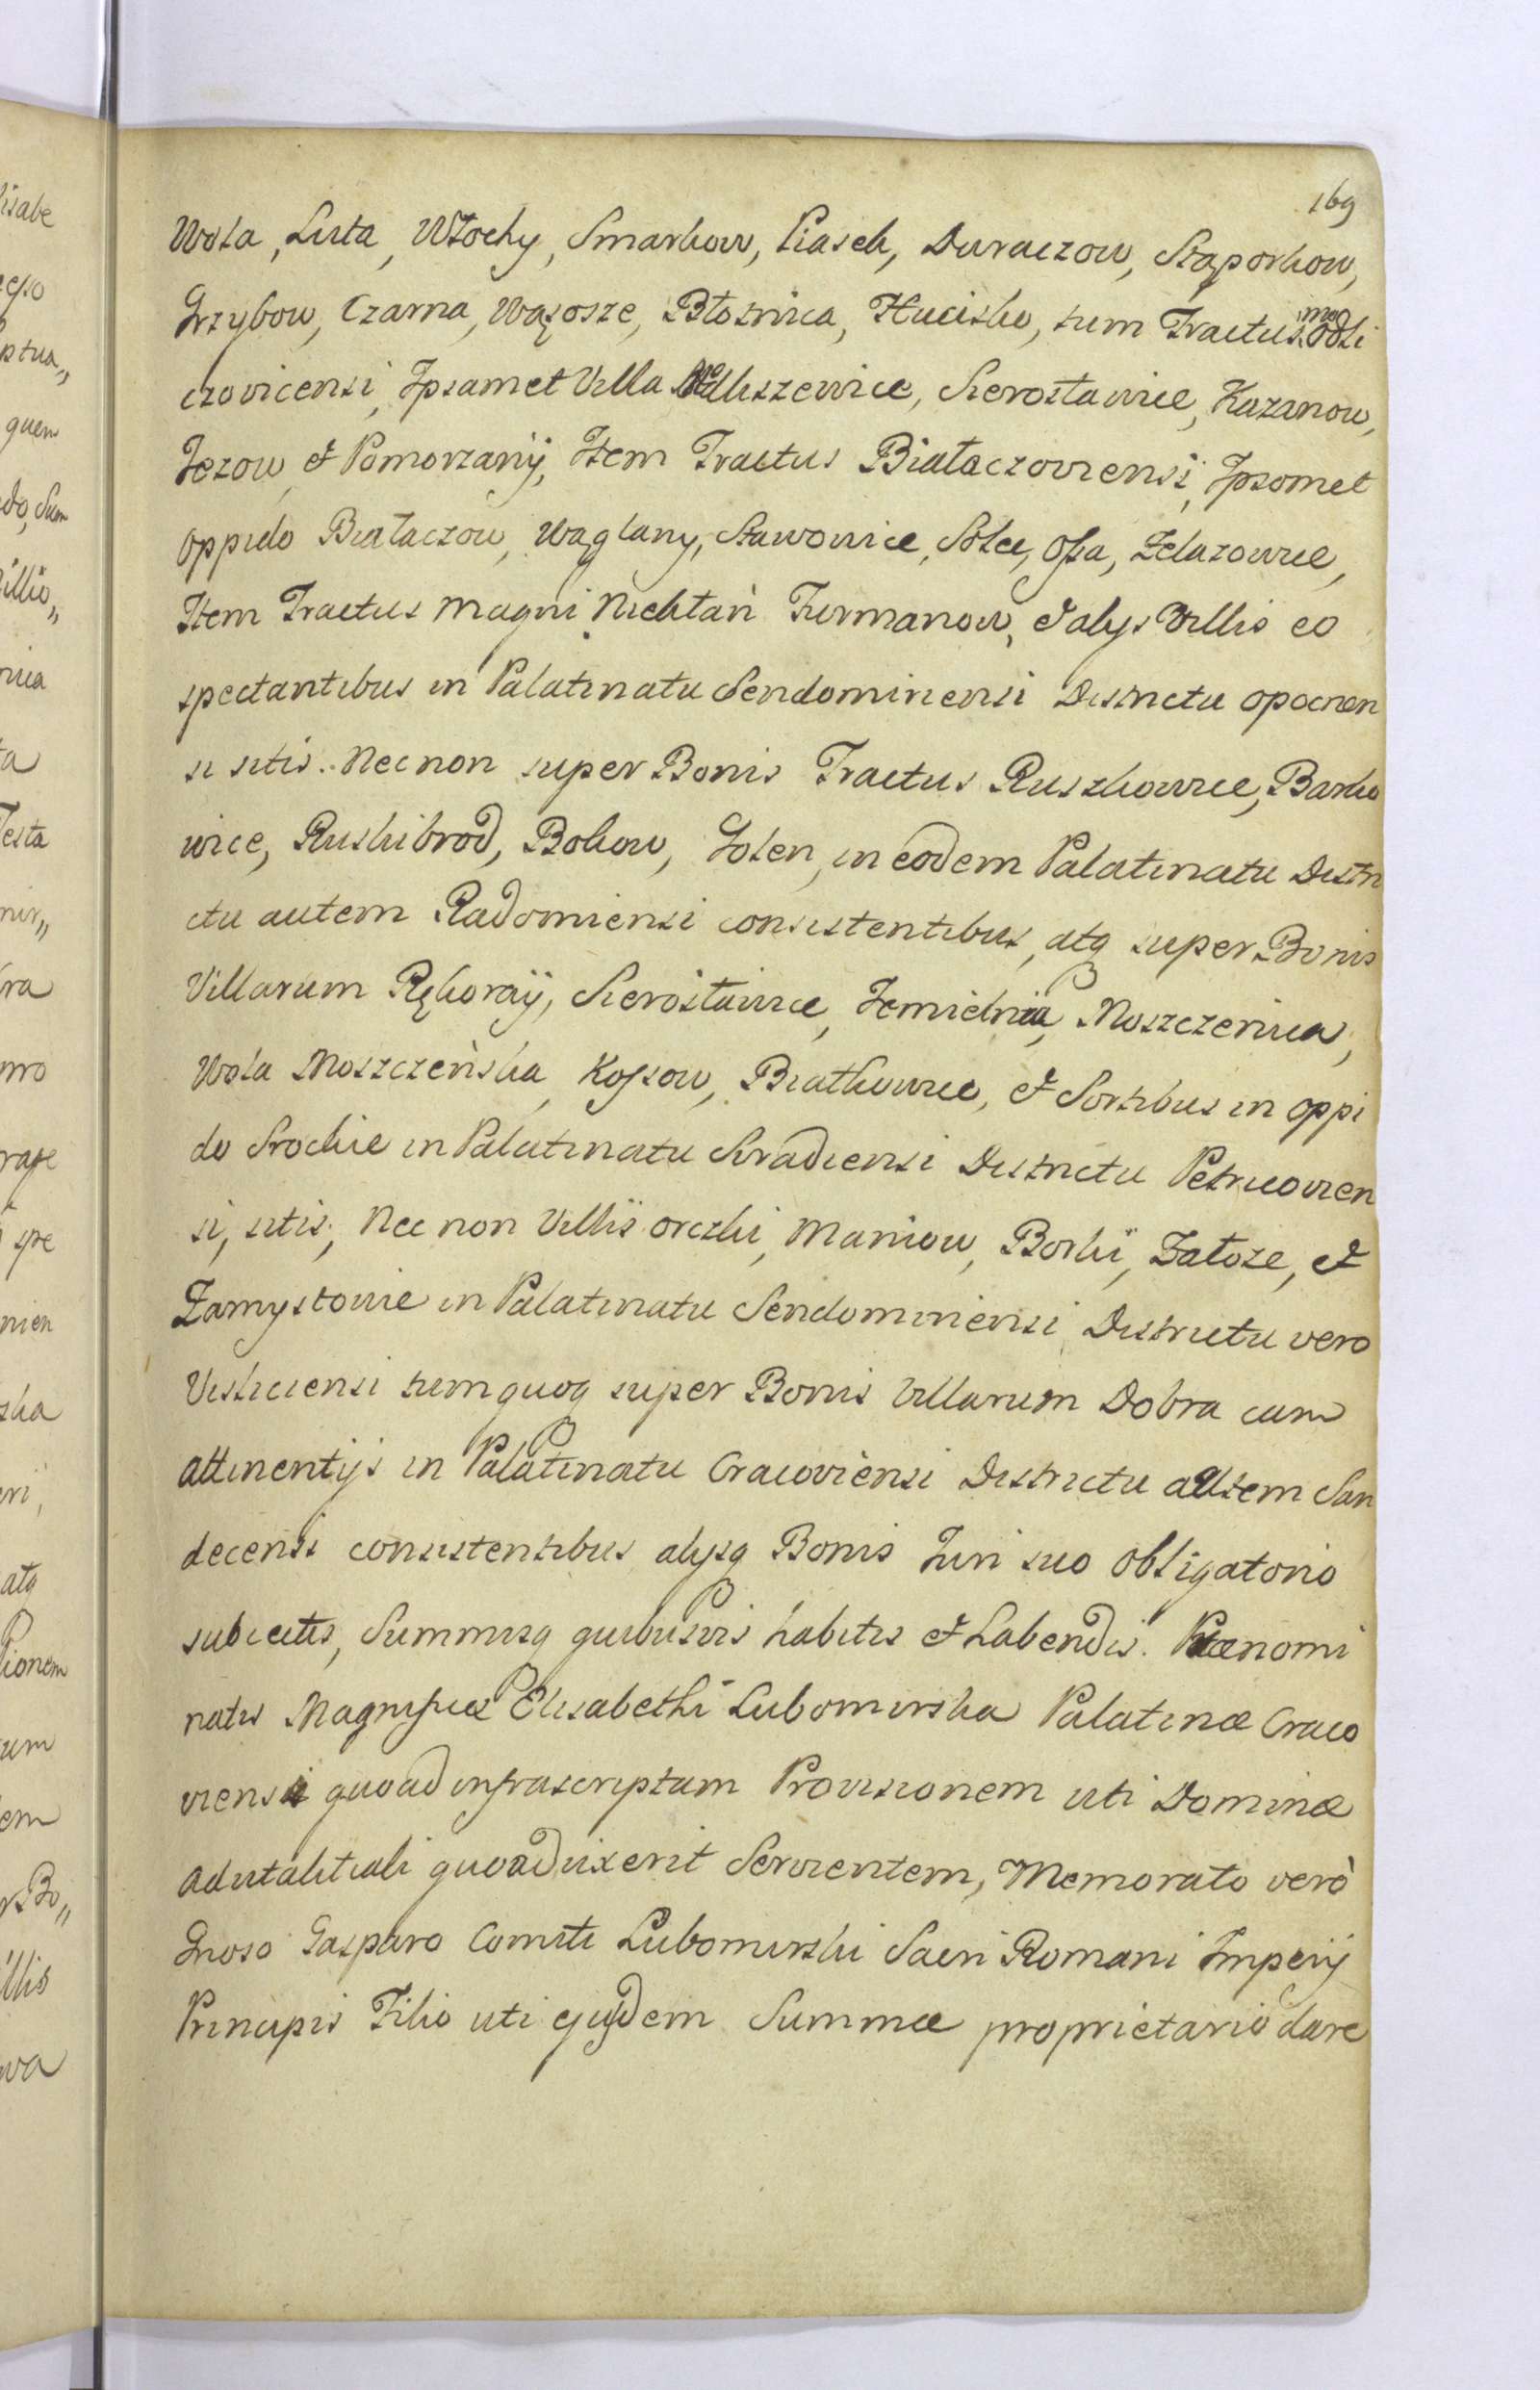 169
Wola, Luta, Włochy, Smarkow, Piasek, Duraczow, Stąporkow,
Grzybow, Czarna, Wąsosze, Błotnica, Hucisko, tum Tractus modli
czovicensi, Ipsamet Villa Modliszewice, Sierosławice, Kazanow,
Jezow, et Pomorzanÿ, Item Tractus Białaczoviensi, Ipsomet
oppido Białaczow, Wąglany, Sławowice, Solec, Ossa, Zelazowice,
Item Tractus magni Niekłań Furmanow, et alys Villis eo
spectantibus in Palatinatu Sendomiriensi Districtu opocnen
si sitis. Nec non super Bonis Tractus Ruszkowice, Barko
wice, Ruskibrod, Bokow, Goten, in eodem Palatinatu Distri
ctu autem Radomiensi consistentibus, atq super Bonis
Villarum Rękoraÿ, Sierosławice, Jemielnia, Moszczenica,
Wola Moszczeńska, Kossow, Bratkowice, et Sortibus in oppi
do Srockie in Palatinatu Siradiensi Districtu Petricovien
si, sitis, Nec non Villis orczki, Maniow, Borkÿ, Załoze, et
Zamystowie in Palatinatu Sendomiriensi Districtu vero
Visliciensi tum quoq super Bonis Villarum Dobra cum
attinentijs in Palatinatu Cracoviensi Districtu autem San
decensi consistentibus alysq Bonis Juri suo obligatorio
subiectis, Summisq quibusvis habitis et habendis. Praenomi
natis Magnificæ Elisabethi Lubomirska Palatinæ Craco
viensi quoad infrascriptam Provisionem uti Dominæ
advitalituali quoad vixerit Servientem, Memorato verò
Gnoso Gasparo Comiti Lubomirski Sacri Romani Imperÿ
Principis Filio uti ejusdem Summæ proprietario dare